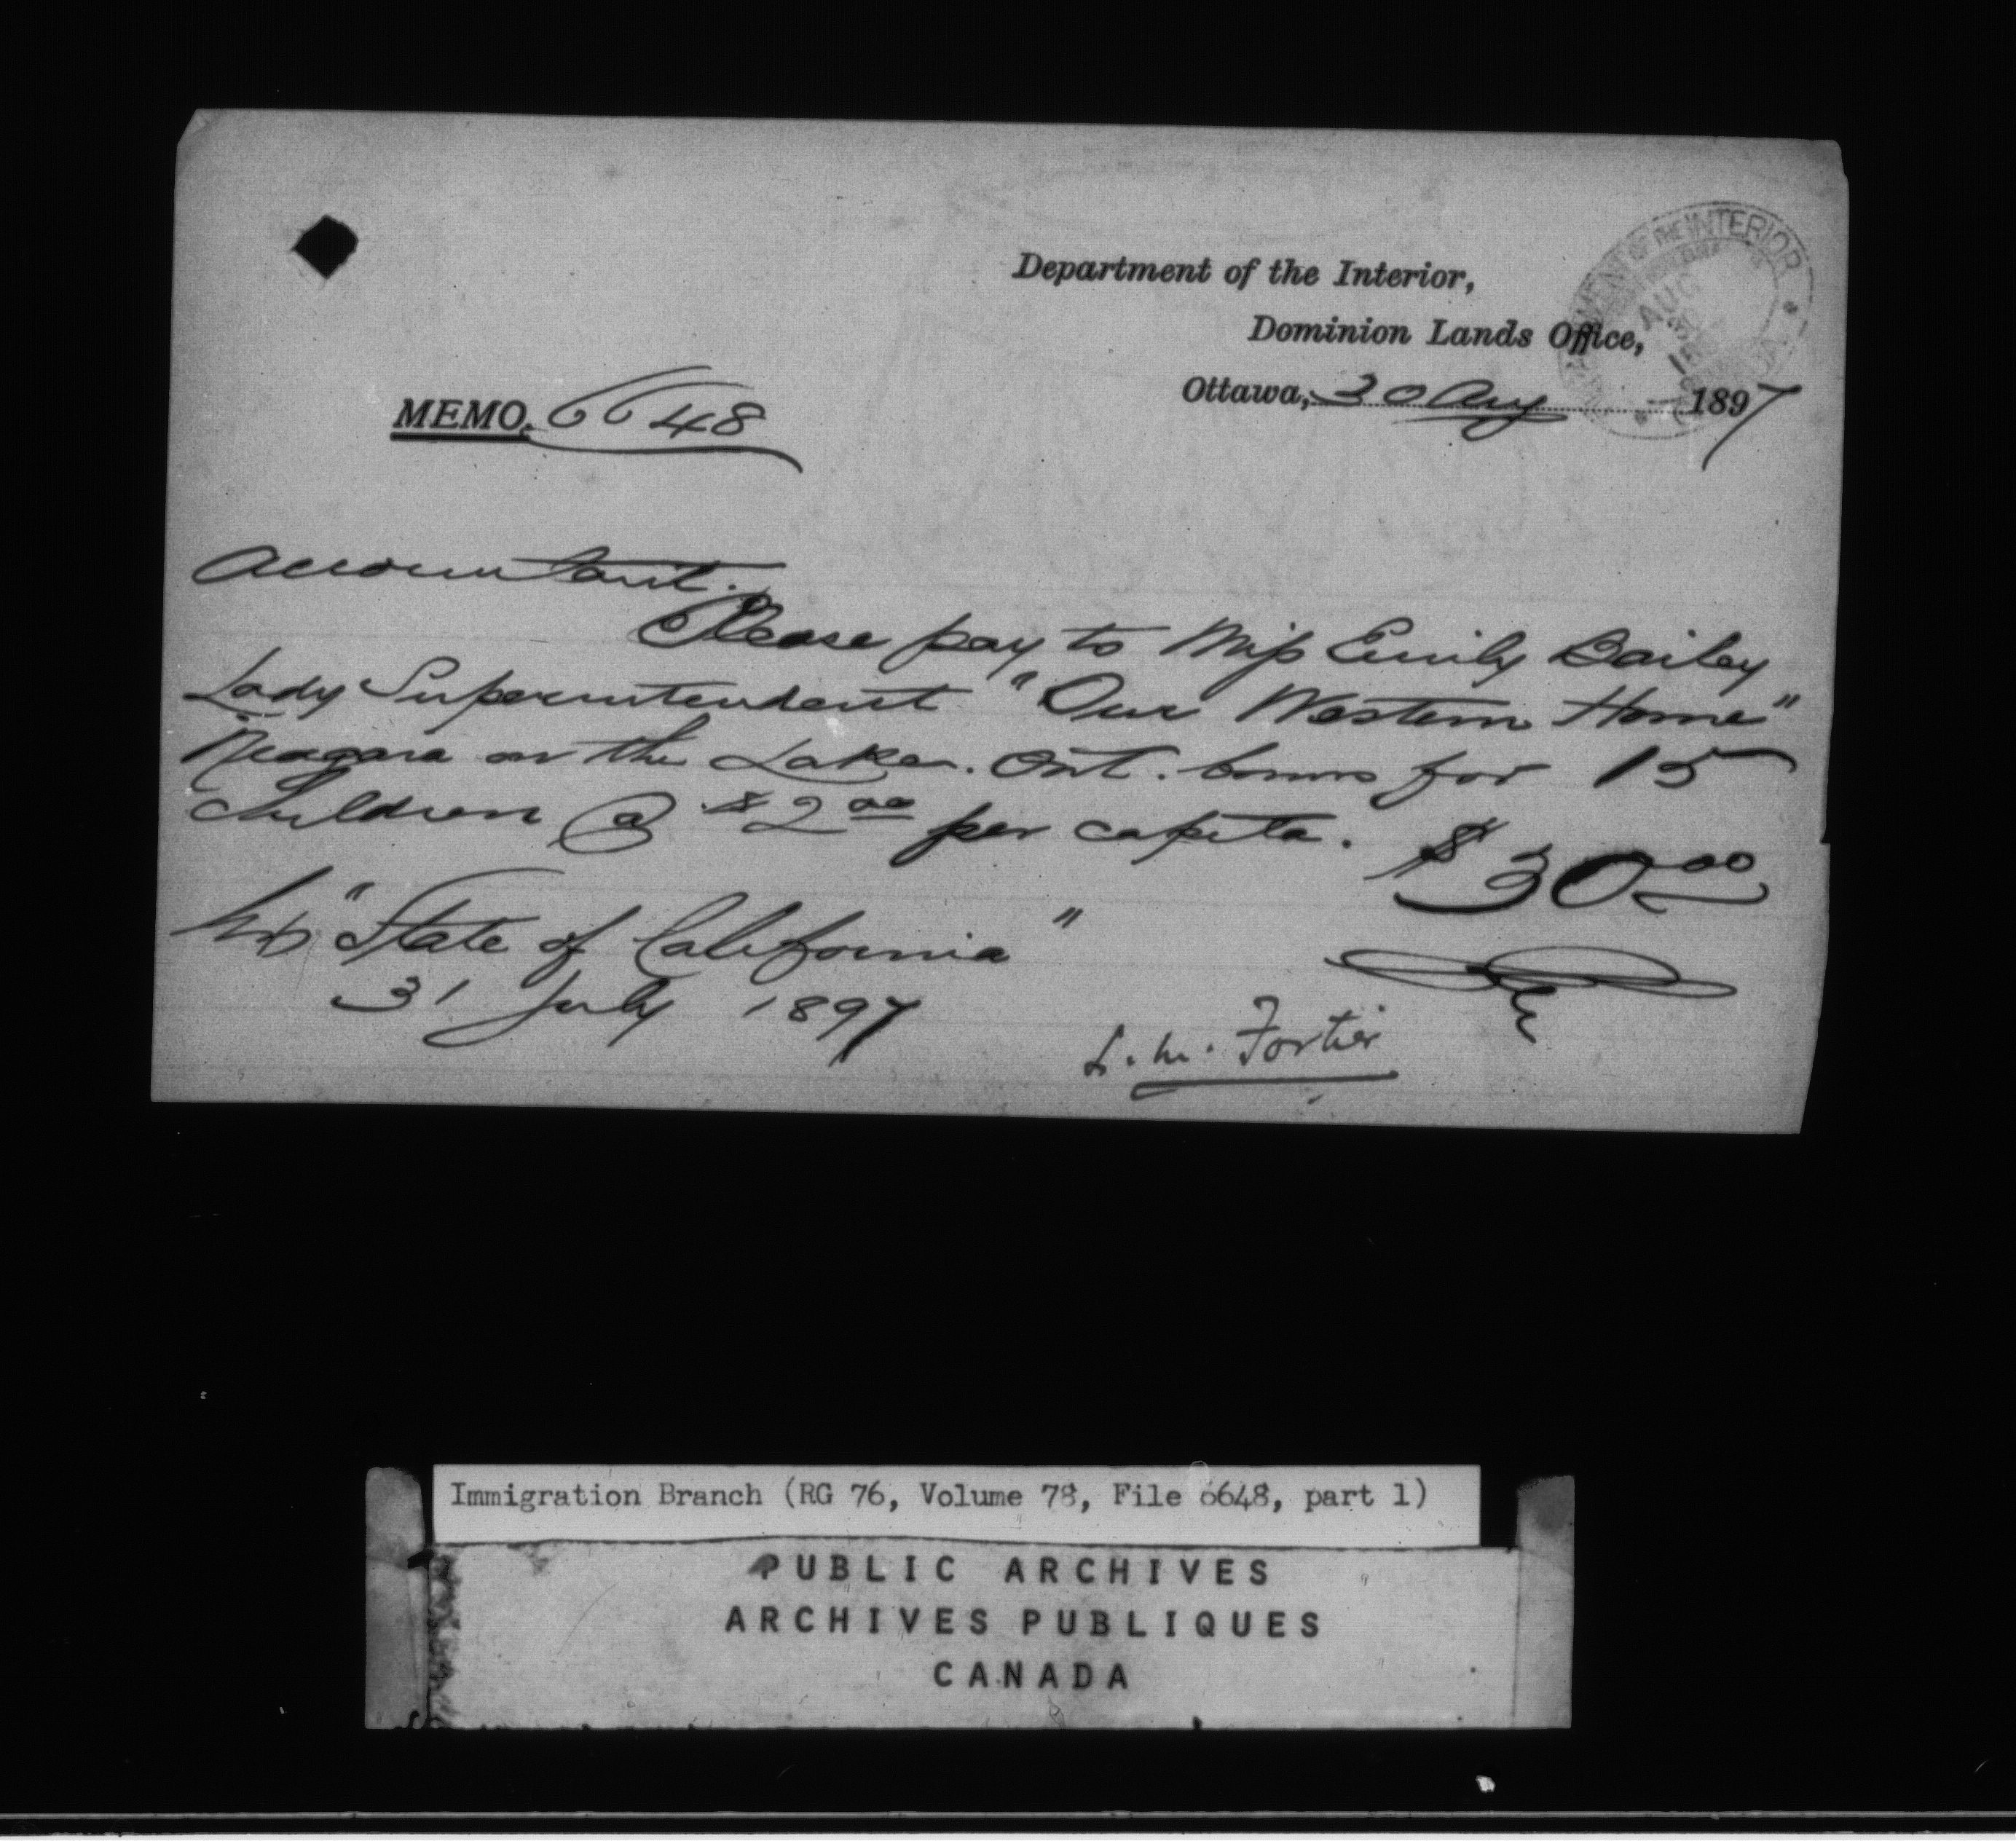 Department of the Interior,
Dominion Lands Office,
Ottawa, 30 Aug 1897
DEPARTMENT OF THE INTERIOR
AUG 30 1897
MEMO. 6648
Accountant.
Please pay to Miss Emily Bailey
Lady Superintendent "Our Western Home"
Niagara on the Lake. Ont. bonus for 15
children @ $2.00 per capita. $30.00
"State of California"
31 July 1897
L. M. Fortier
Immigration Branch (RG 76, Volume 78, File 6648, part 1)
PUBLIC ARCHIVES
ARCHIVES PUBLIQUES
CANADA